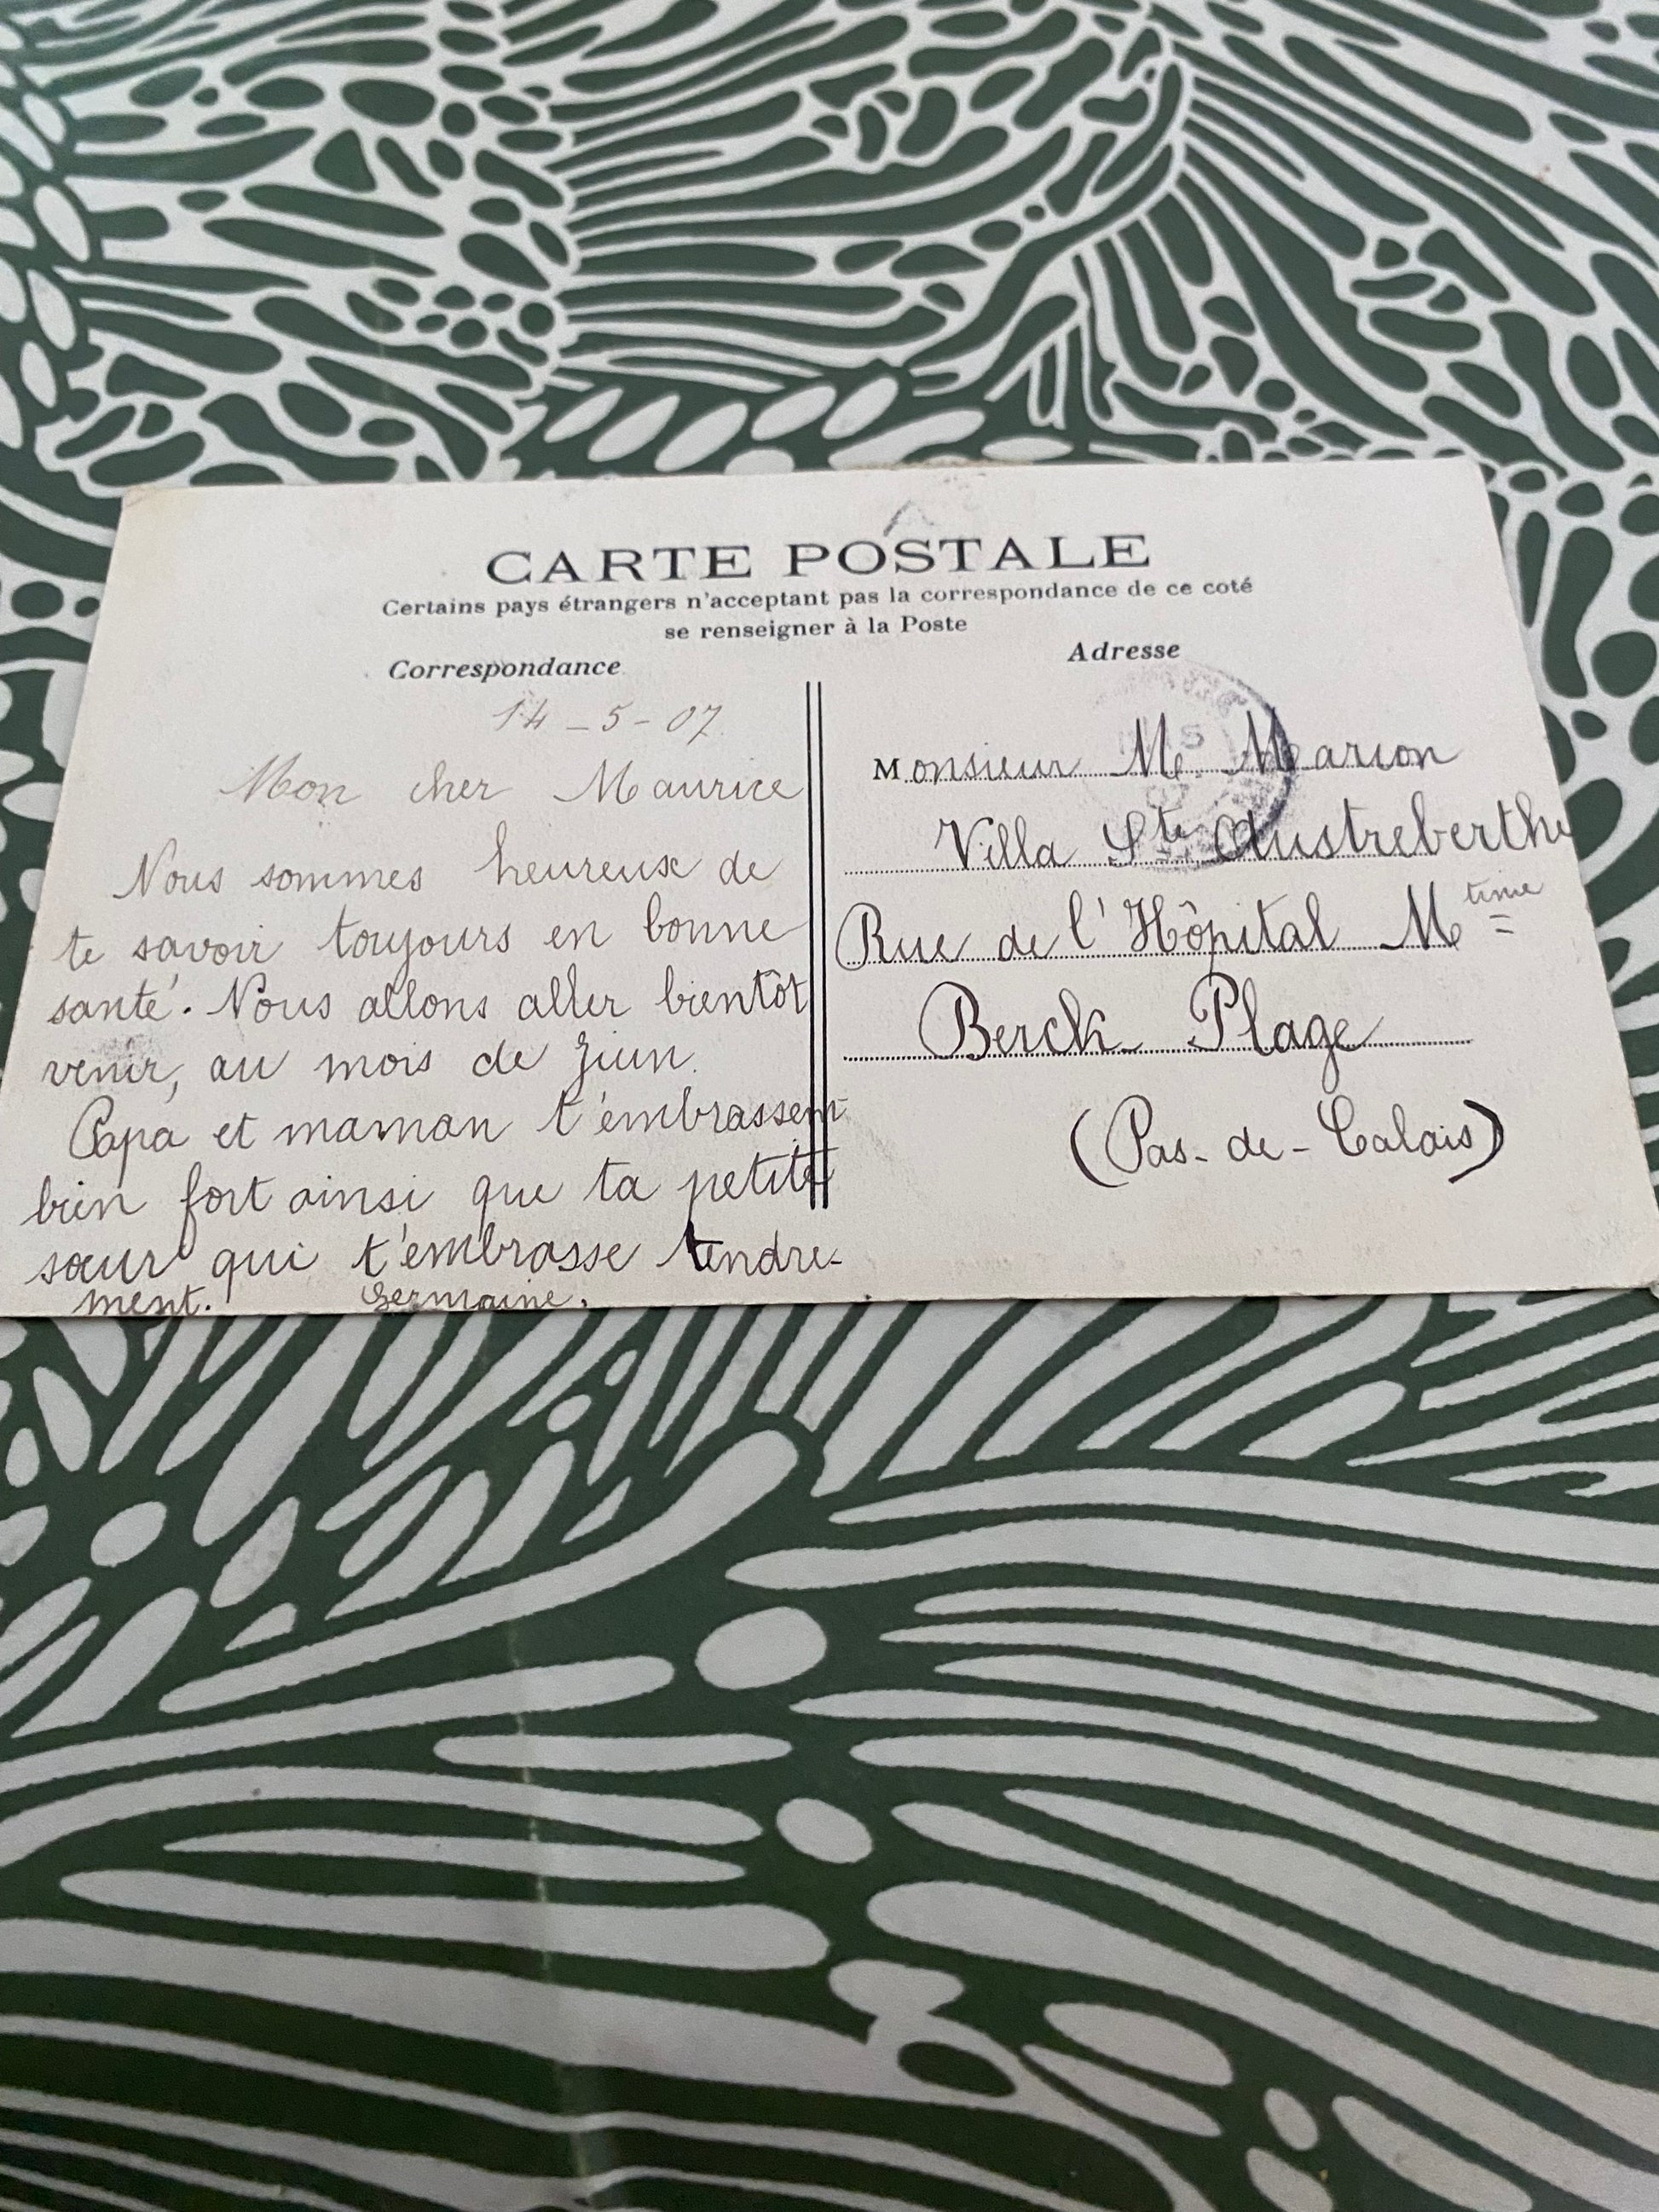 CARTE POSTALE
Certains pays étrangers n'acceptant pas la correspondance de ce coté
se renseigner à la Poste
Correspondance
14-5-07.
Mon cher Maurice
Nous sommes heureux de
te savoir toujours en bonne
santé. Nous allons aller bientôt
venir, au mois de Juin.
Papa et maman t'embrassent
bien fort ainsi que ta petite
sœur qui t'embrasse tendre-
ment. Germaine.
Adresse
Monsieur Mce Marion
Villa Ste Austreberthe
Rue de l'Hôpital Mtime
Berck Plage
(Pas-de-Calais)